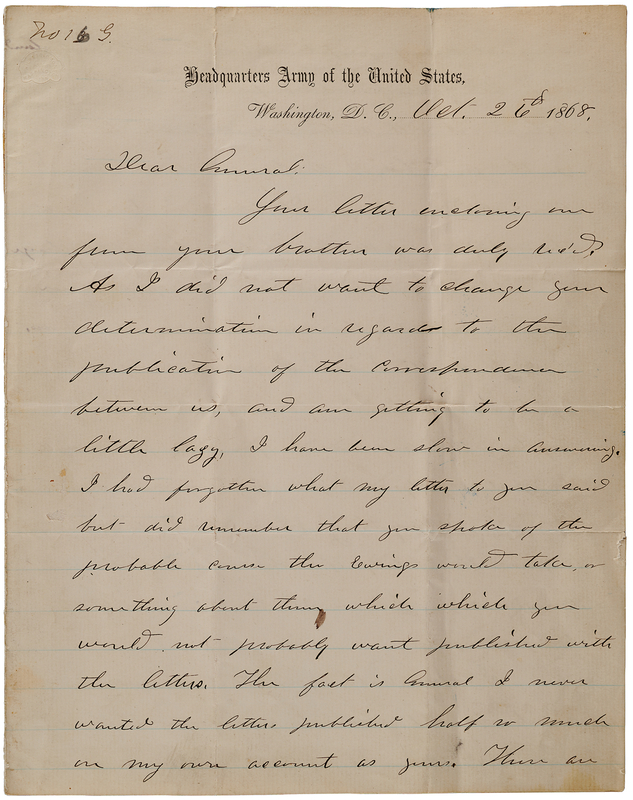 No 16 G.
Headquarters Army of the United States,
Washington, D. C., Oct. 26th 1868.
Dear General:
Your letter enclosing one
from your brother was duly rec'd.
As I did not want to change your
determination in regard to the
publication of the correspondence
between us, and am getting to be a
little lazy, I have been slow in answering.
I had forgotten what my letter to you said
but did remember that you spoke of the
probable course the Ewings would take, or
something about them which which you
would not probably want published with
the letters. The fact is General I never
wanted the letters published half so much
on my own account as yours. There are